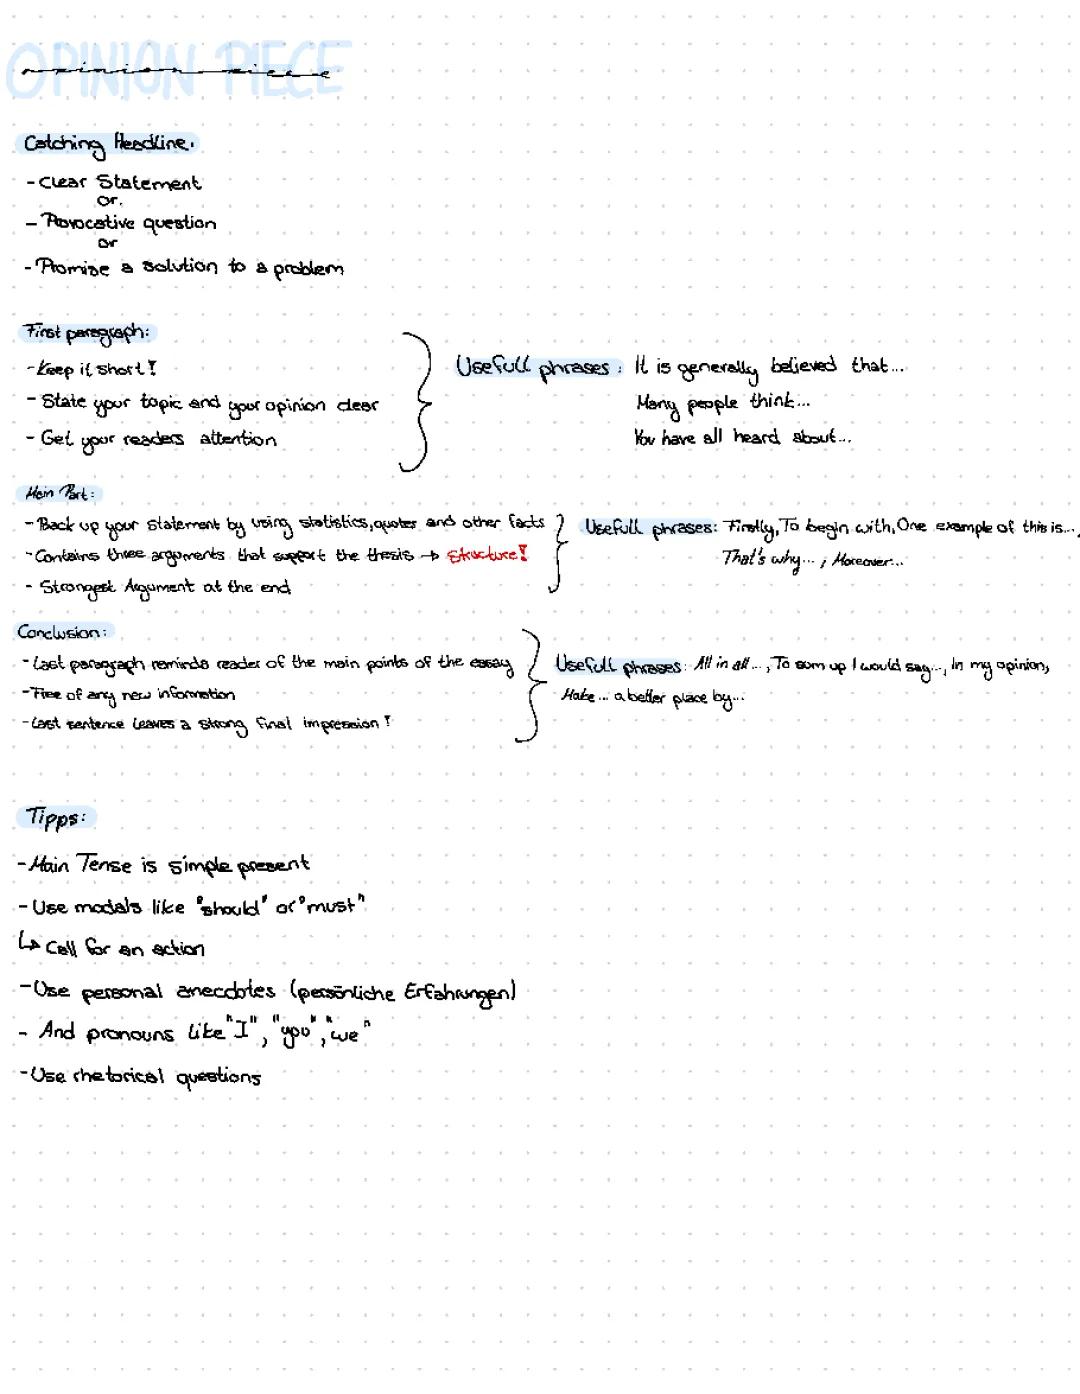 OPINION PIECE
opinion piece
Catching Headline:
- Clear Statement
or
- Provocative question
or
- Promise a solution to a problem
First paragraph:
- Keep it short!
- State your topic and your opinion clear
- Get your readers attention
Usefull phrases: It is generally believed that...
Many people think...
You have all heard about...
Main Part:
- Back up your statement by using statistics, quotes and other facts
- Contains three arguments that support the thesis → Structure!
- Strongest Argument at the end
Usefull phrases: Firstly, To begin with, One example of this is...,
That's why..., Moreover...
Conclusion:
- Last paragraph reminds reader of the main points of the essay
- Free of any new information
- Last sentence leaves a strong final impression!
Usefull phrases: All in all..., To sum up I would say..., In my opinion,
Make... a better place by...
Tipps:
- Main Tense is simple present
- Use modals like "should" or "must"
↳ Call for an action
- Use personal anecdotes (persönliche Erfahrungen)
- And pronouns like "I", "you", "we"
- Use rhetorical questions